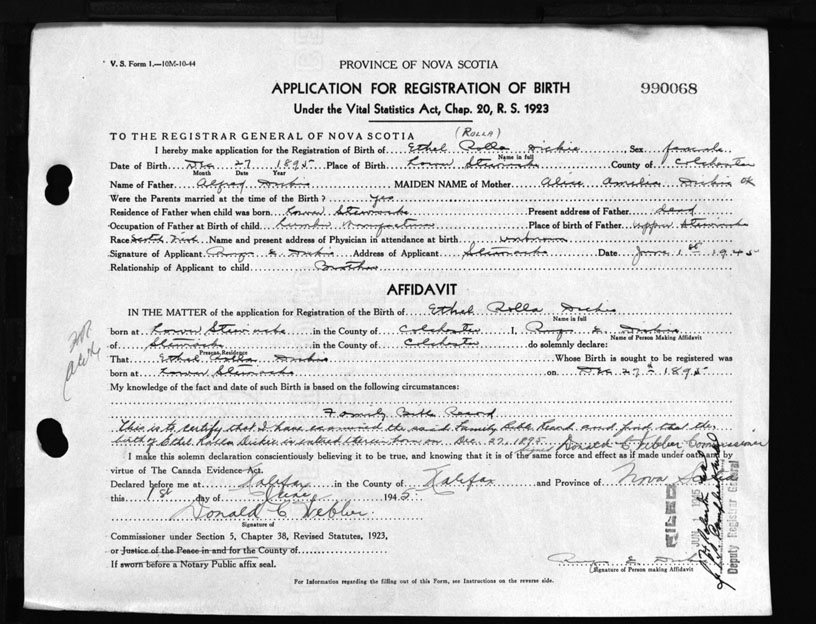 V. S. Form 1.—10M-10-44
PROVINCE OF NOVA SCOTIA
APPLICATION FOR REGISTRATION OF BIRTH
990068
Under the Vital Statistics Act, Chap. 20, R. S. 1923
TO THE REGISTRAR GENERAL OF NOVA SCOTIA
(ROLLA)
I hereby make application for the Registration of Birth of Ethel Rolla Dickie Sex female
Name in full
Date of Birth Dec 27 1895 Place of Birth Lower Stewiacke County of Colchester
Month Date Year
Name of Father Alfred Dickie MAIDEN NAME of Mother Alice Amelia Dickie OK
Were the Parents married at the time of the Birth? Yes
Residence of Father when child was born Lower Stewiacke Present address of Father dead
Occupation of Father at Birth of child Lumber Manufacturer Place of birth of Father Upper Stewiacke
Race Scotch Irish Name and present address of Physician in attendance at birth unknown
Signature of Applicant E. Dickie Address of Applicant Stewiacke Date June 1st 1945
Relationship of Applicant to child Brother
AFFIDAVIT
IN THE MATTER of the application for Registration of the Birth of Ethel Rolla Dickie
Name in full
born at Lower Stewiacke in the County of Colchester I, E. Dickie
Name of Person Making Affidavit
of Stewiacke in the County of Colchester do solemnly declare:
Present Residence
That Ethel Rolla Dickie Whose Birth is sought to be registered was
born at Lower Stewiacke on Dec 27th 1895
My knowledge of the fact and date of such Birth is based on the following circumstances:
Family Bible Record
This is to certify that I have examined the said Family Bible Record and find that the
birth of Ethel Rolla Dickie is entered therein born on Dec. 27, 1895. Signed Donald C Webber Commissioner
I make this solemn declaration conscientiously believing it to be true, and knowing that it is of the same force and effect as if made under oath and by
virtue of The Canada Evidence Act.
Declared before me at Halifax in the County of Halifax and Province of Nova Scotia
this 1st day of June 1945.
Donald C Webber
Signature of
Commissioner under Section 5, Chapter 38, Revised Statutes, 1923,
or Justice of the Peace in and for the County of
If sworn before a Notary Public affix seal.
E. Dickie
(Signature of Person making Affidavit)
FILED
JUN 1 1945
Deputy Registrar General
For Information regarding the filling out of this Form, see Instructions on the reverse side.